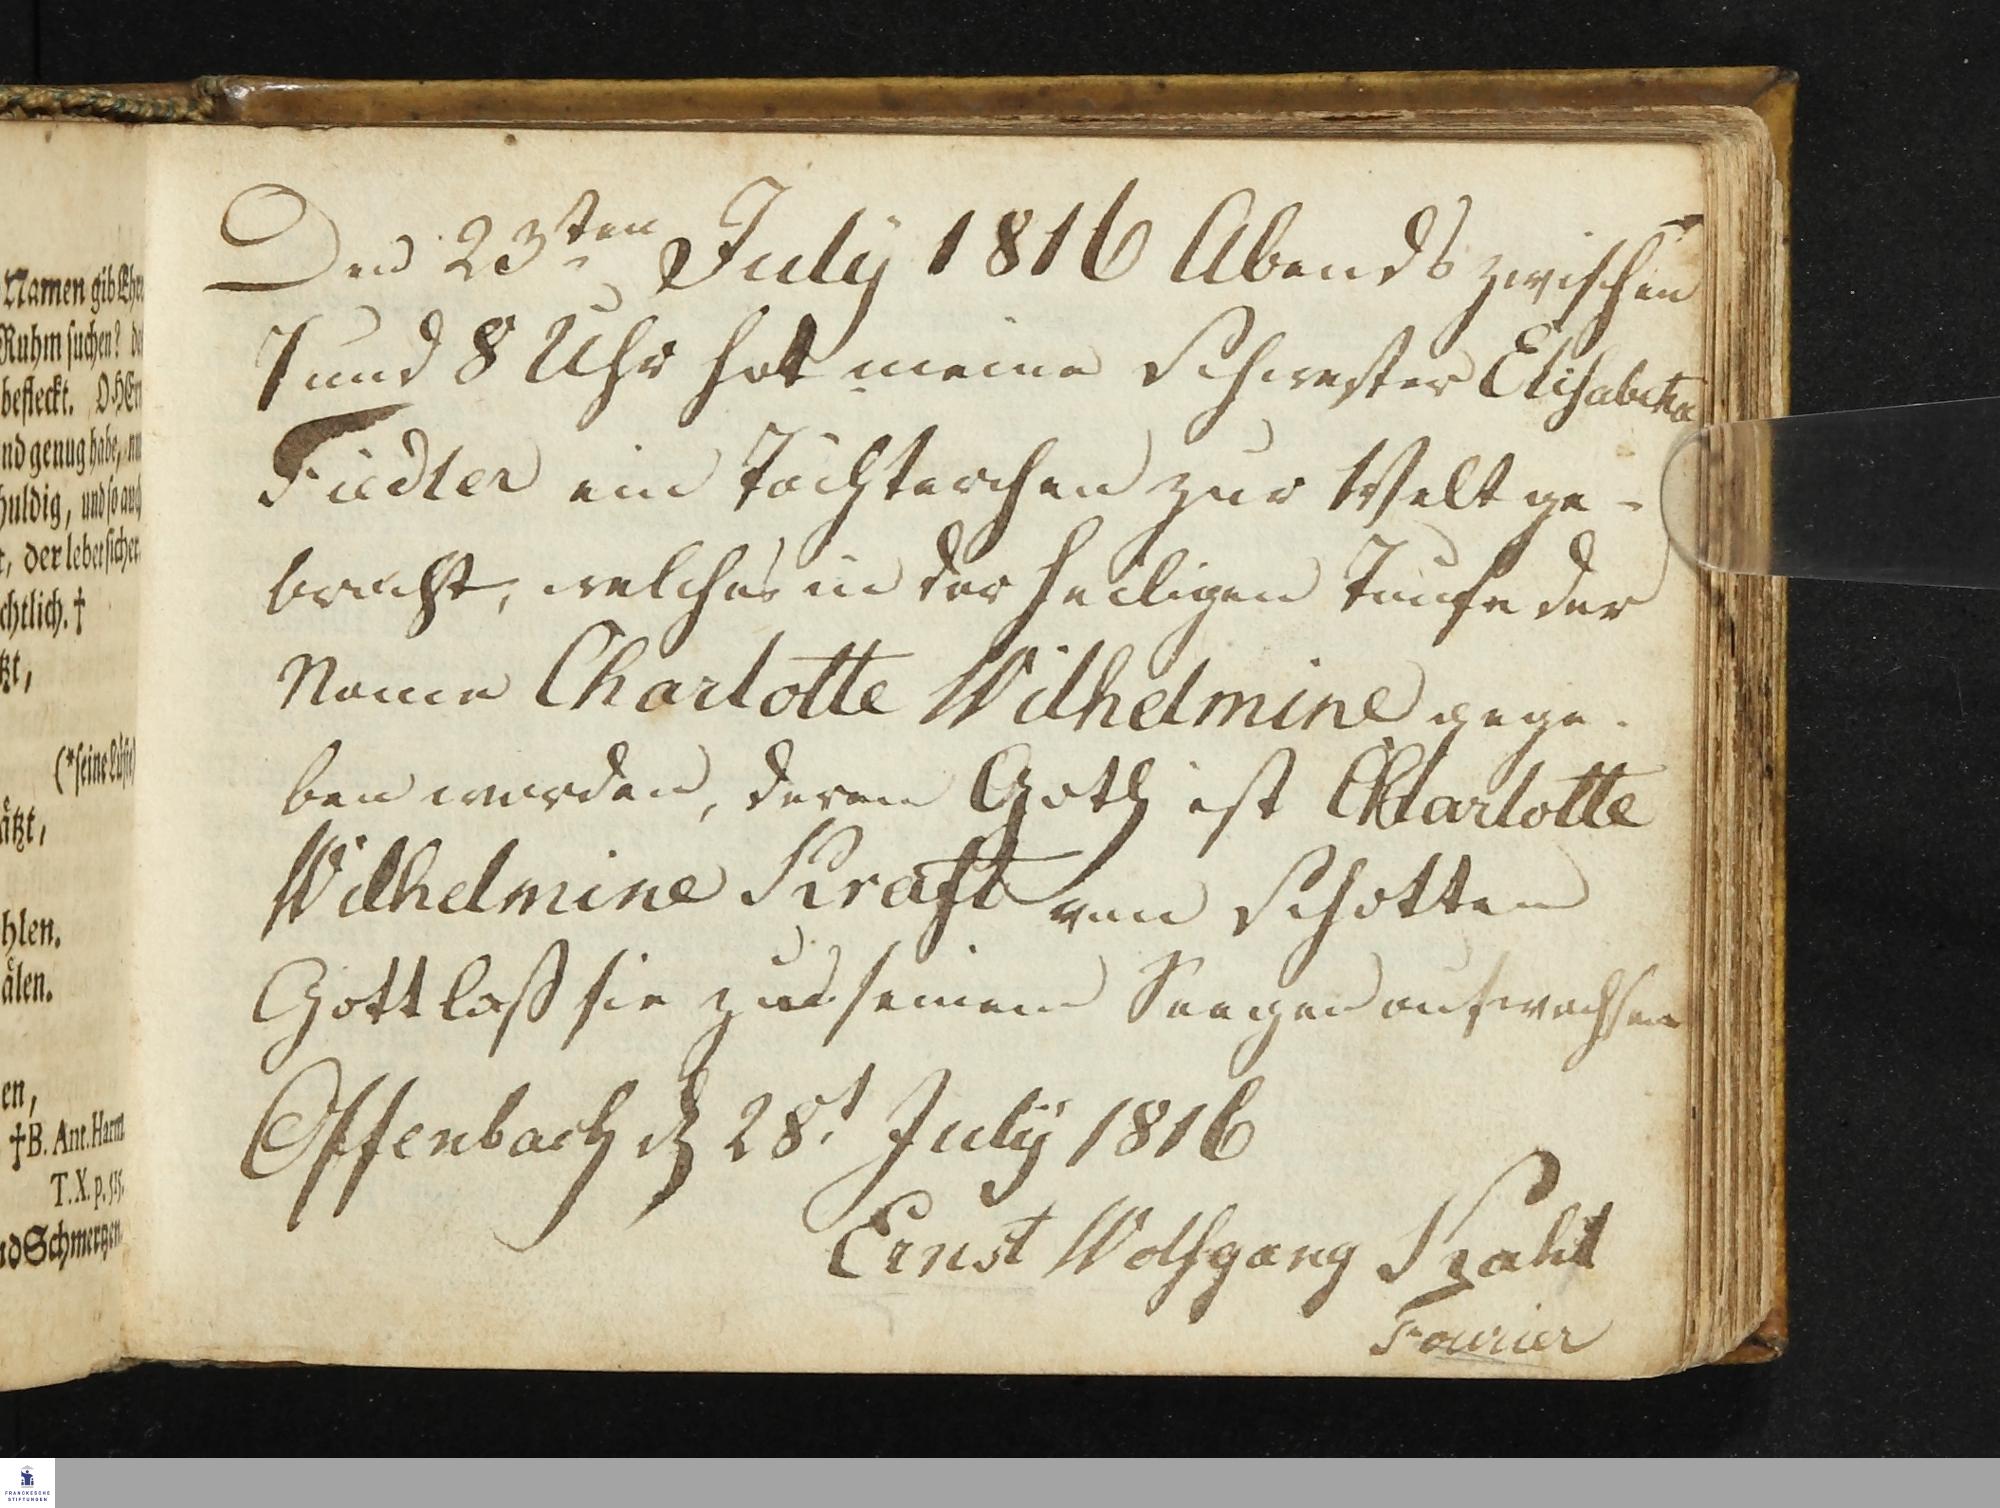 Namen gib Ehre
Ruhm suchen? de
befleckt. O HErr
nd genug habe, nu
huldig, und so auch
t, der lebet sicher.
chtlich. †
tzt,
(*seine Lüste)
ätzt,
hlen.
älen.
en,
† B. Ant. Harm.
T. X. p. 515.
nd Schmertzen
Den 23sten July 1816 Abends zwischen
7 und 8 Uhr hat meine Schwester Elisabetha
Fiedler ein Töchterchen zur Welt ge-
bracht, welches in der heiligen Taufe der
Name Charlotte Wilhelmine gege-
ben worden, deren Goth ist Charlotte
Wilhelmine Kraft von Schotten
Gott laß sie zu seinem Seegen aufwachsen
Offenbach d 28t July 1816
Ernst Wolfgang
Fourier
FRANCKESCHE
STIFTUNGEN